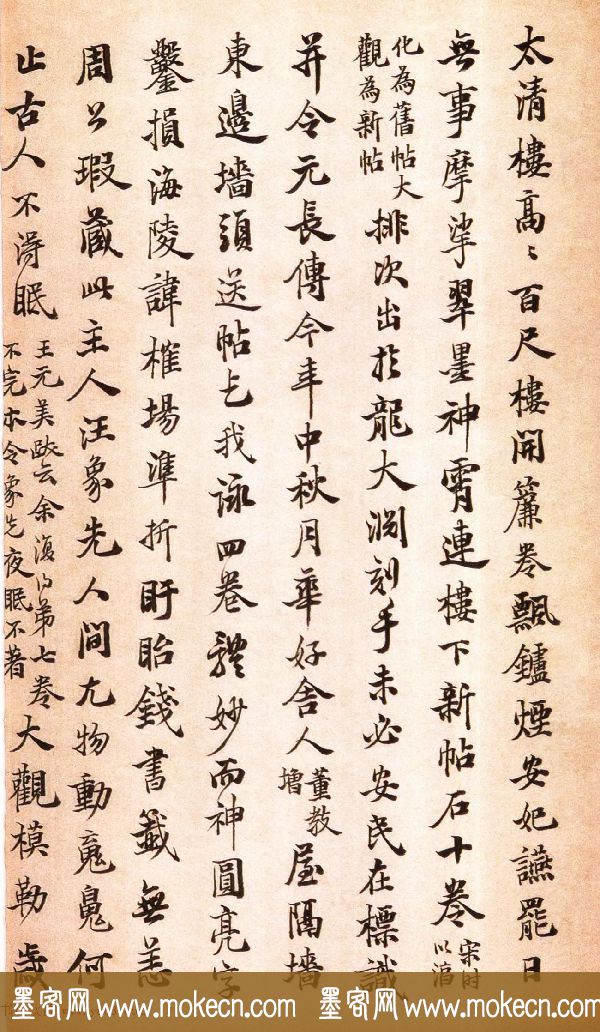 太清樓高〻百尺樓開簾卷飄鑪煙安妃讌罷日
無事摩挲翠墨神霄連樓下新帖石十卷宋時以淳
化為舊帖大觀為新帖排次出於龍大淵刻手未必安民在標識
并令元長傳今年中秋月華好舍人董教增屋隔牆
東邊墻頭送帖乞我詠四卷體妙而神圓亮字
鑿損海陵諱榷場準折盱眙錢書籤無恙
周公瑕藏此主人汪象先人間尤物動竟鬼何
止古人不得眠王元美跋云余復得第七卷不完本令象先夜眠不著大觀模勒歲
墨客网 www.mokecn.com 墨客网 www.mokecn.com